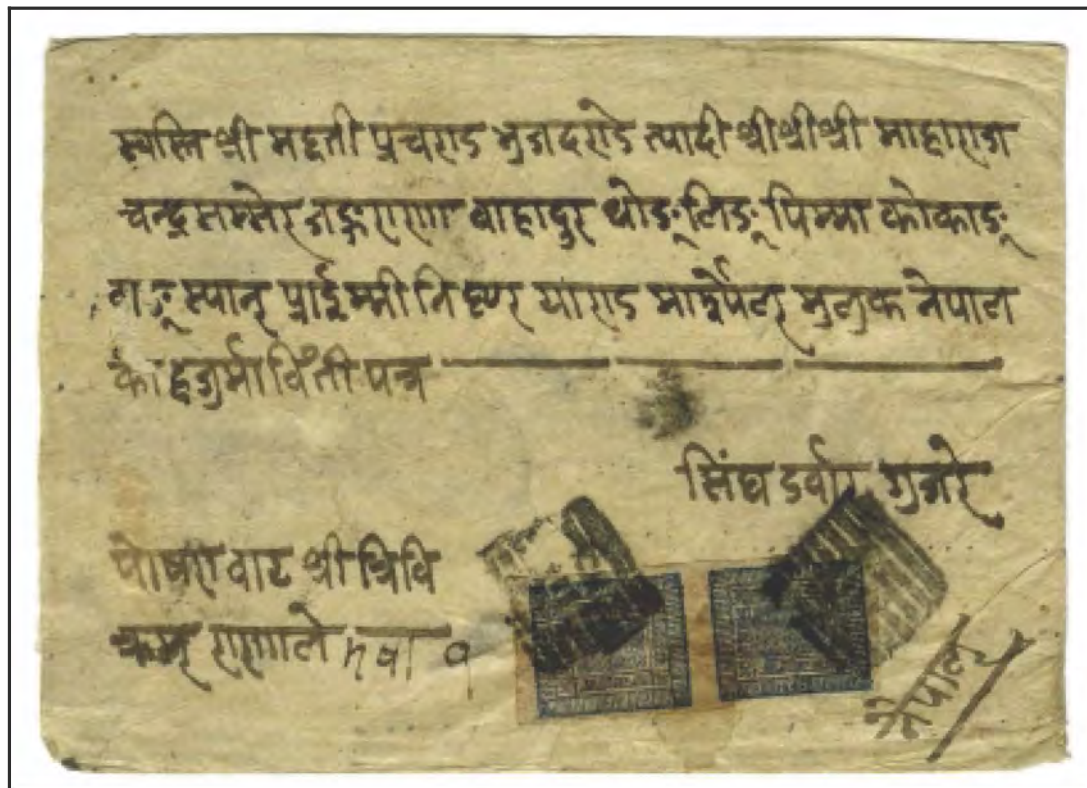 स्वस्ति श्री मद्दती प्रचराड भुजदराडे त्यादी श्रीश्रीश्री माहाराज
चन्द्र सम्सेर जङ्गराणा वाहादुर थोङ्लिङ् पिम्मा कोकाङ्
गङ् स्यान् प्राईम्मीनिष्टर याराड मार्सेल् मुलुक नेपाल
का हजुर्मा विंती पत्र
सिंघ डर्वार गुजरे
पोषरा वाट श्री त्रिवि
क्रम् राणाले
नेपाल्